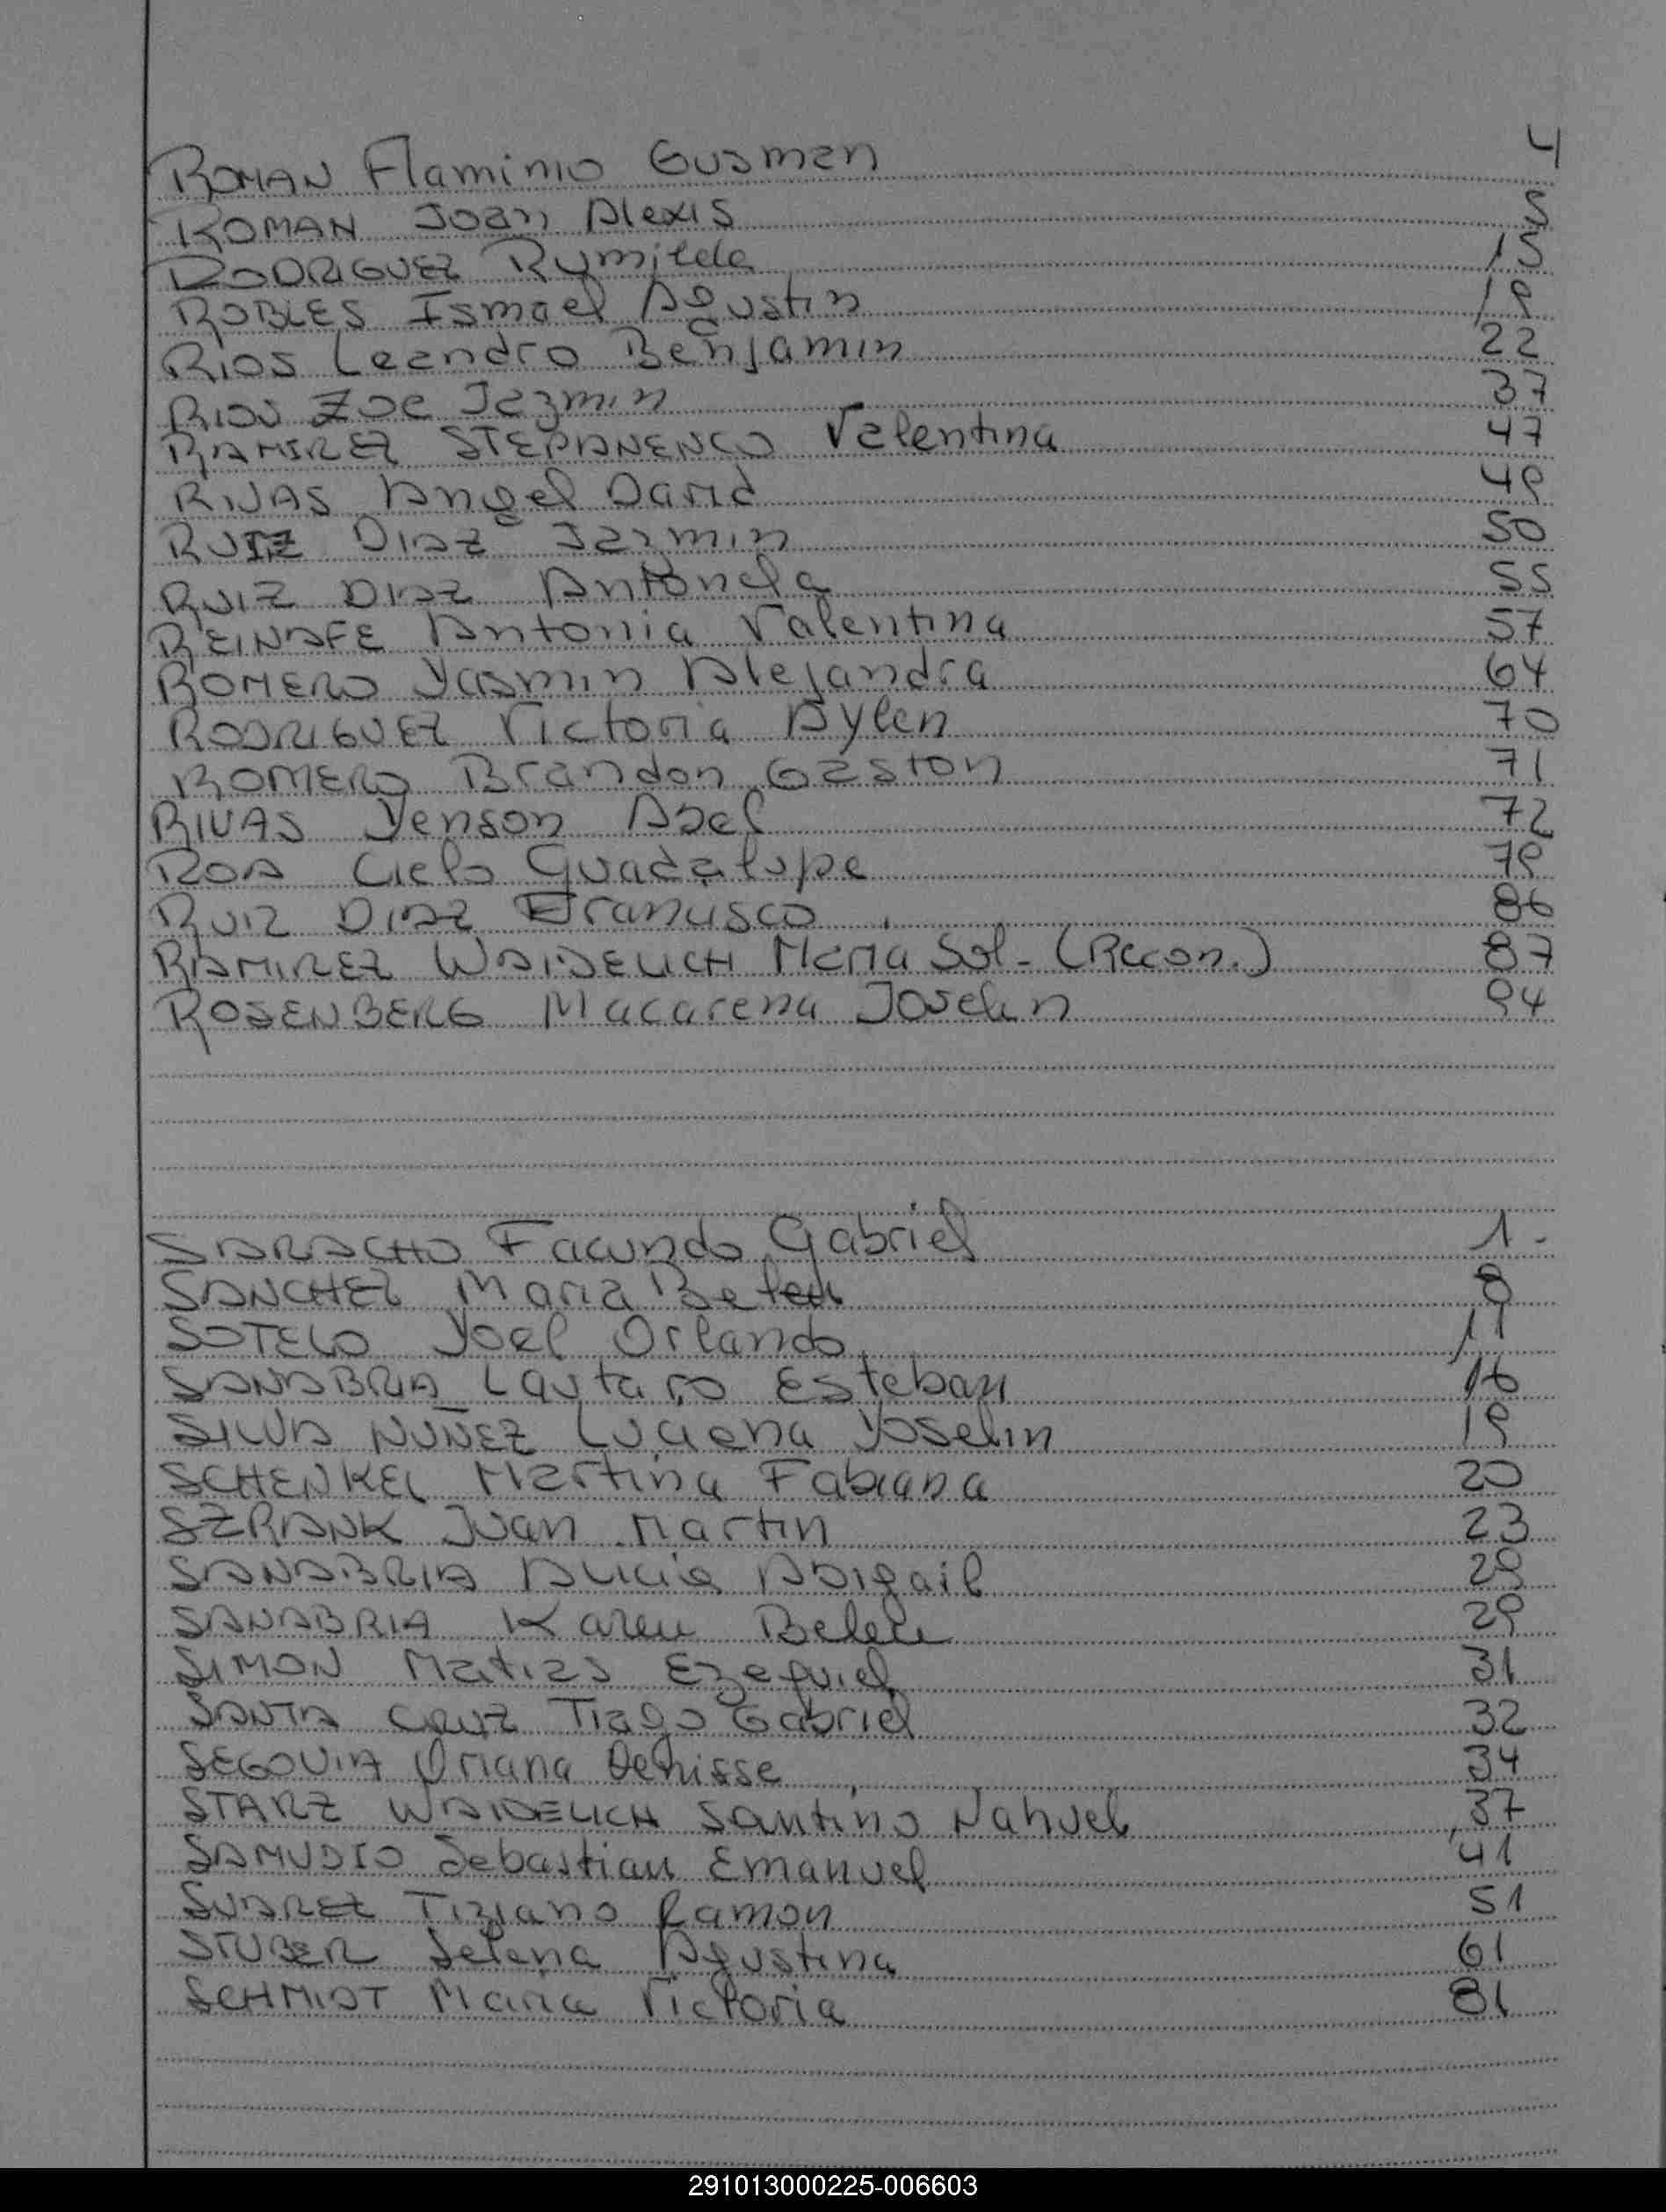 ROMAN Flaminio Gusman 4
ROMAN Joan Alexis 5
RODRIGUEZ Rumilda 15
ROBLES Ismael Agustin 19
RIOS Leandro Benjamin 22
RIOS Zoe Jazmin 37
RAMIREZ STEPANENCO Valentina 47
RIVAS Angel David 49
RUIZ DIAZ Jazmin 50
RUIZ DIAZ Antonela 55
REINAFE Antonia Valentina 57
ROMERO Yasmin Alejandra 64
RODRIGUEZ Victoria Aylen 70
ROMERO Brandon Gaston 71
RIVAS Yenson Abel 72
ROA Cielo Guadalupe 79
RUIZ DIAZ Francisco 86
RAMIREZ WAIDELICH Maria Sol - (Recon.) 87
ROSENBERG Macarena Joselin 94
SARACHO Facundo Gabriel 1.
SANCHEZ Maria Belen 8
SOTELO Yoel Orlando 11
SANABRIA Lautaro Esteban 16
SILVA NUÑEZ Luciana Yoselin 19
SCHENKEL Martina Fabiana 20
SZRANK Juan Martin 23
SANABRIA Alicia Abigail
SANABRIA Karen Belen 29
SIMON Matias Ezequiel 31
SANTA CRUZ Tiago Gabriel 32
SEGOVIA Oriana Denisse 34
STARZ WAIDELICH Santino Nahuel 37
SAMUDIO Sebastian Emanuel 41
SUAREZ Tiziano Ramon 51
STUBER Selena Agustina 61
SCHMIDT Maria Victoria 81
291013000225-006603